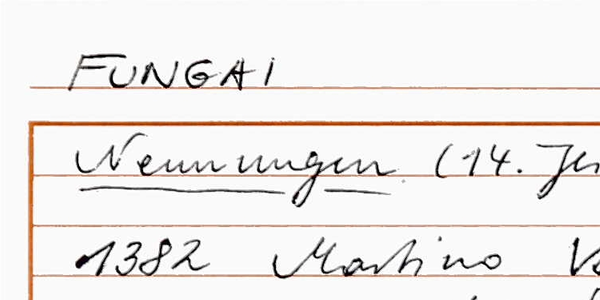 FUNGAI
Nennungen (14. Je
1382 Martino V